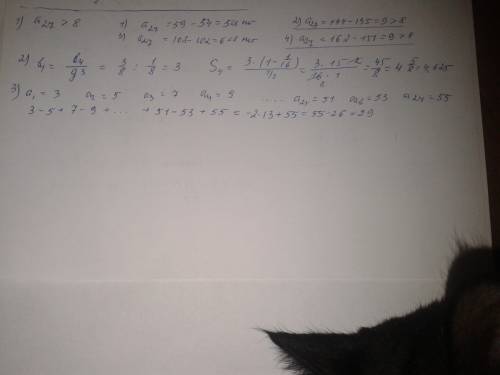 1) a₂₇ > 8   1) a₂₇ = 59 - 54 = 5 < 8 нет   2) a₂₇ = 144 - 135 = 9 > 8
3) a₂₇ = 108 - 102 = 6 < 8 нет   4) a₂₇ = 162 - 153 = 9 > 8
2) b₁ = b₄/q³ = 3/8 : 1/8 = 3   S₄ = 3·(1-1/16)/1/2 = 3·15·2/16·1 = 45/8 = 4 5/8 = 4,625
3) a₁ = 3   a₂ = 5   a₃ = 7   a₄ = 9   ..... a₂₅ = 51   a₂₆ = 53   a₂₇ = 55
3 - 5 + 7 - 9 + ... + 51 - 53 + 55 = -2·13 + 55 = 55 - 26 = 29